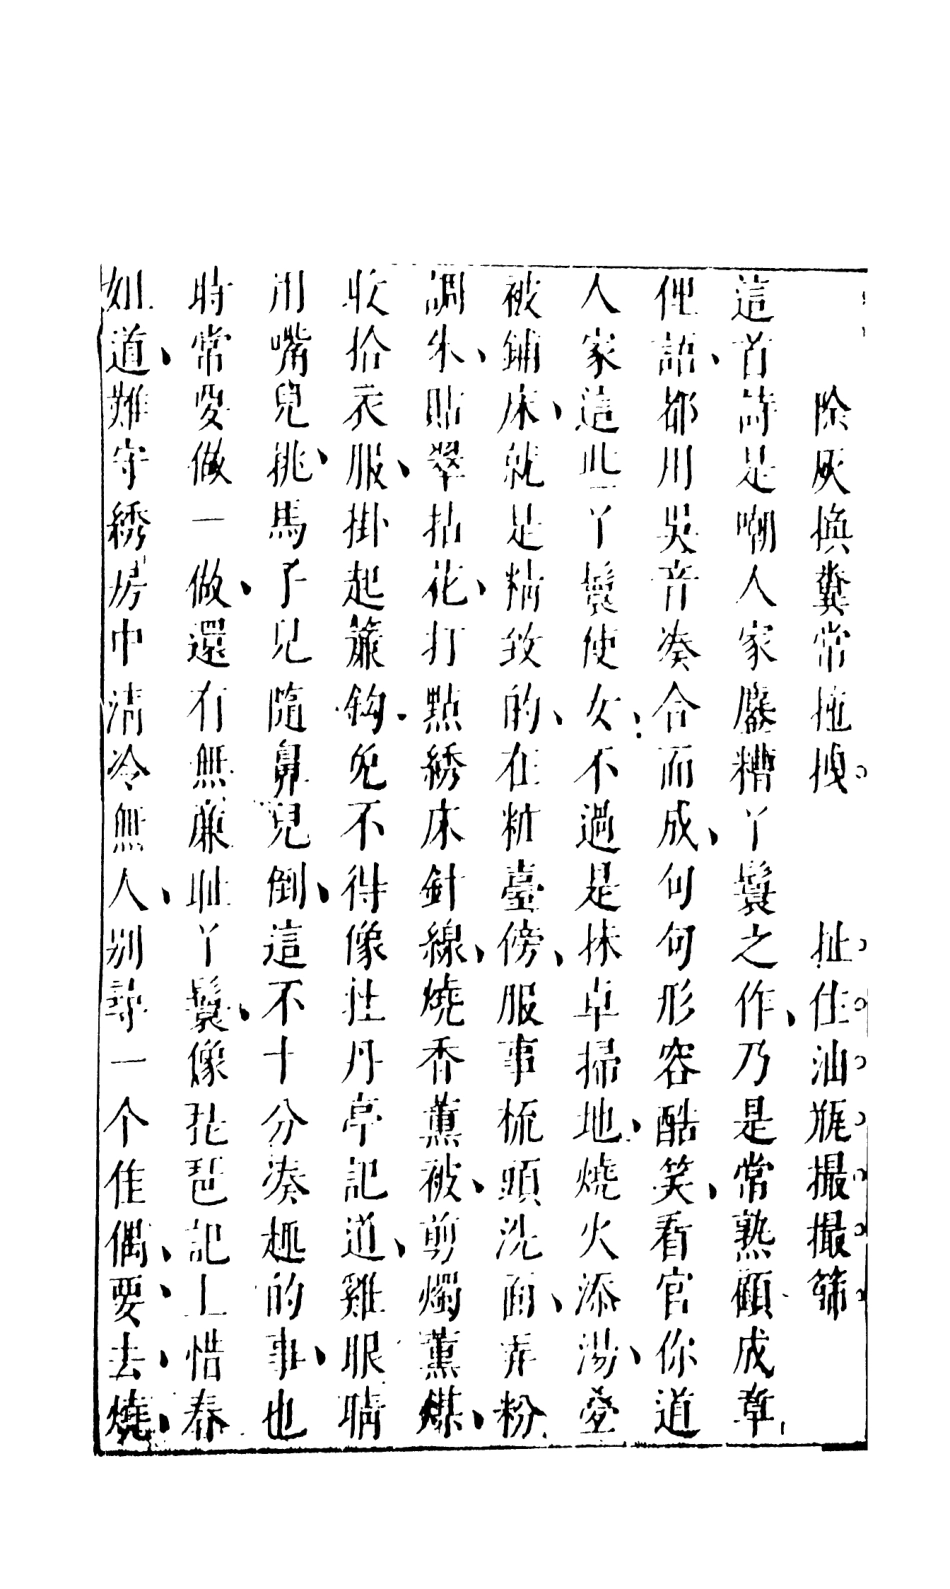 除灰換糞常拖拽　扯住油瓶撮撮篩
這首詩是嘲人家麤糟丫鬟之作、乃是常熟顧成章
俚語、都用吳音湊合而成、句句形容酷笑、看官你道
人家這些丫鬟使女、不過是抹卓掃地、燒火添湯、疊
被鋪床、就是精致的、在粧臺傍、服事梳頭洗面、弄粉
調朱、貼翠拈花、打點綉床針線、燒香薰被、剪燭薰煤、
收拾衣服、掛起簾鈎、免不得像牡丹亭記道、雞眼睛
用嘴兒挑、馬子兒隨鼻兒倒、這不十分湊趣的事、也
時常要做一做、還有無廉耻丫鬟、像琵琶記上惜春
姐道、難守綉房中清冷無人、別尋一个佳偶、要去、燒、